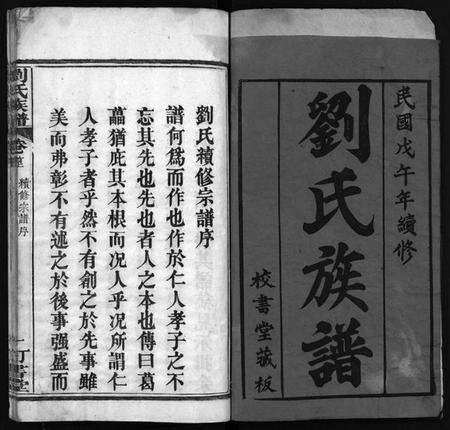 民國戊午年續修
劉氏族譜
校書堂藏板
劉氏續修宗譜序
譜何為而作也作於仁人孝子之不
忘其先也先也者人之本也傳曰葛
藟猶庇其本根而况人乎况所謂仁
人孝子者乎然不有創之於先事雖
美而弗彰不有述之於後事强盛而
劉氏族譜
卷首
續修宗譜序
一